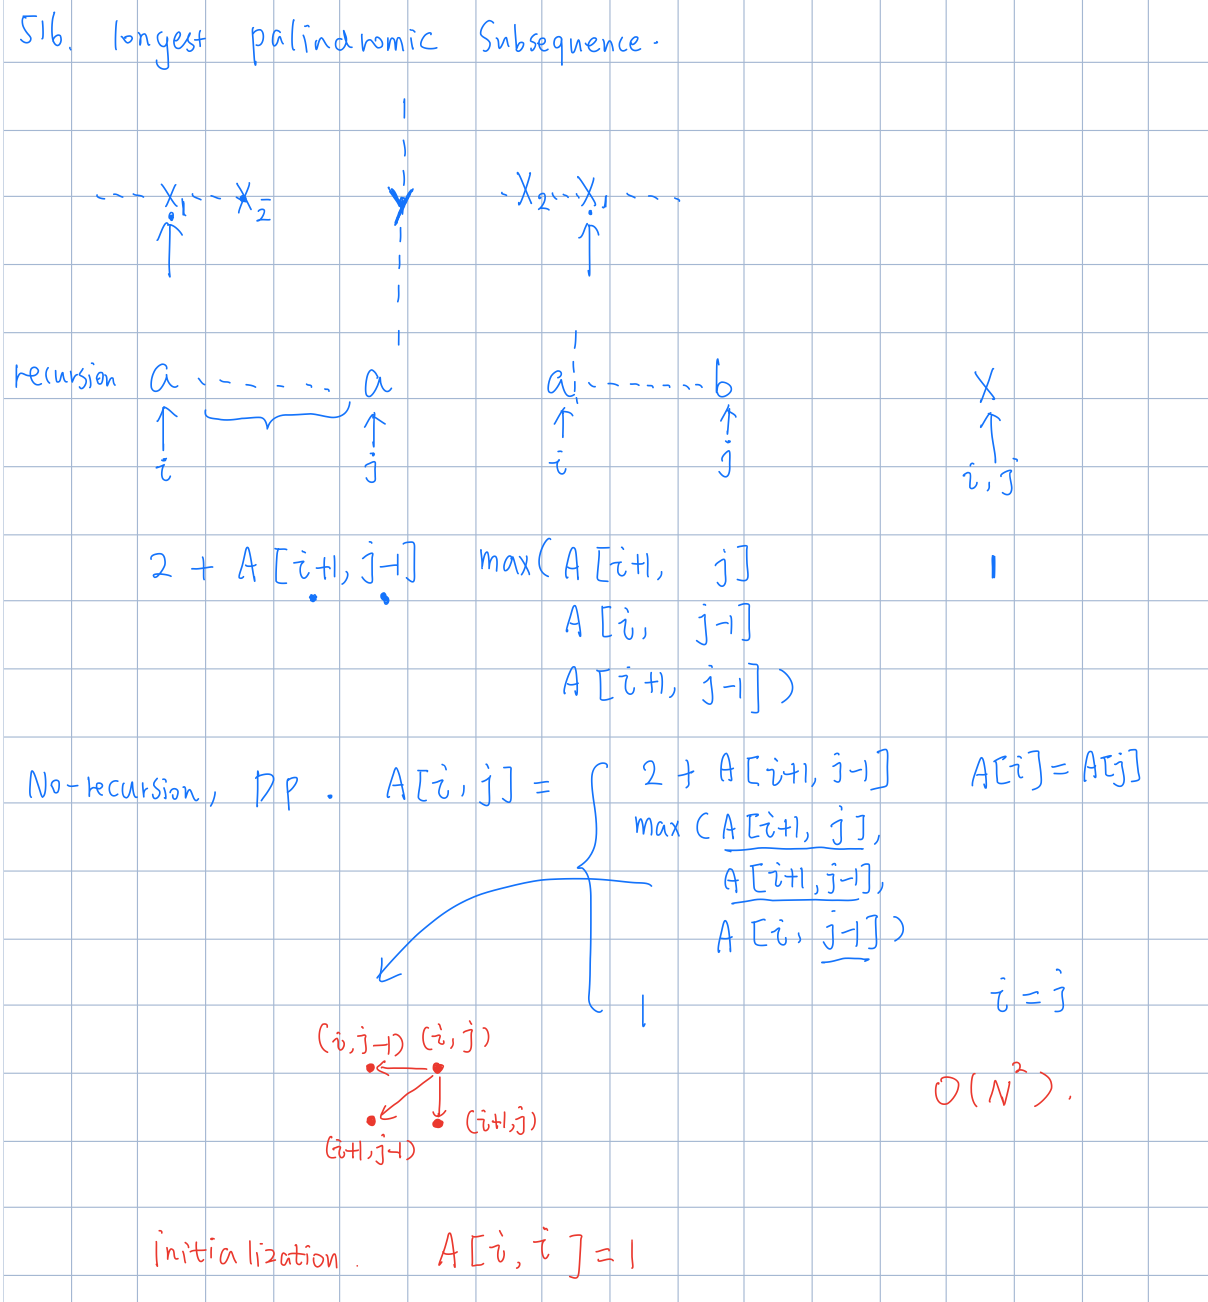 516. longest palindromic Subsequence.
--- X₁ -- X₂ Y -X₂...X₁ ---
recursion a ------ a a ------- b X
i j i j i, j
2 + A[i+1, j-1] max( A[i+1, j] 1
A[i, j-1]
A[i+1, j-1] )
No-recursion, DP. A[i, j] = { 2 + A[i+1, j-1] A[i] = A[j]
max ( A[i+1, j],
A[i+1, j-1],
A[i, j-1] )
1 i = j
(i, j-1) (i, j)
O(N²).
(i+1, j)
(i+1, j-1)
initialization. A[i, i] = 1